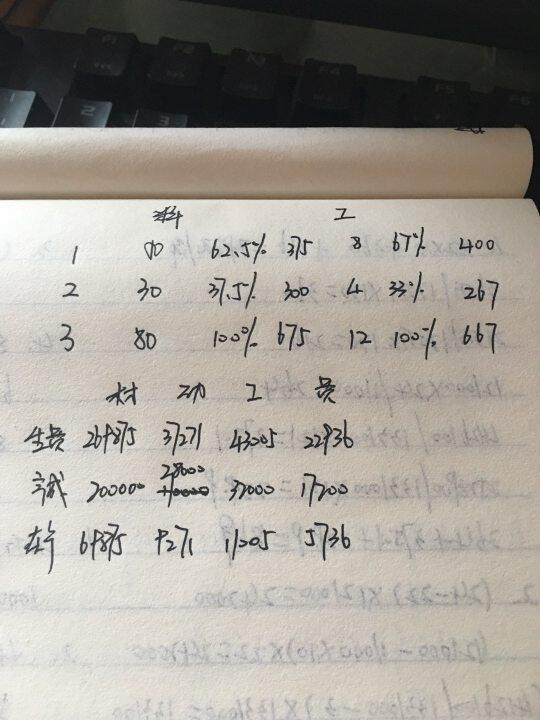 料 工
1 50 62.5% 375 8 67% 400
2 30 37.5% 300 4 33% 267
3 80 100% 675 12 100% 667
材 动 工 费
生费 269875 37271 43005 22936
28000
完成 200000 32000 17200
在产 69875 9271 11005 5736